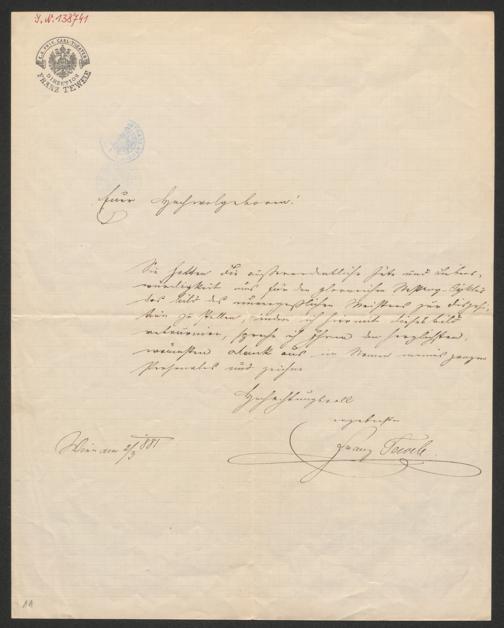 I. N. 138741
K. K. PRIV. CARL-THEATER
DIREKTION
FRANZ TEWELE
Euer Hochwolgeboren!
Sie hatten die außerordentliche Güte und Liebens-
würdigkeit uns für den Nestroy-Cyklus
das Bild des unvergeßlichen Meisters zur Verfü-
gung zu stellen, indem ich hiermit dieses Bild
retournire, spreche ich Ihnen den herzlichsten,
wärmsten Dank aus im Namen meines ganzen
Personales und zeichne
Hochachtungsvoll
ergebenster
Franz Tewele
Wien am 2/5 881